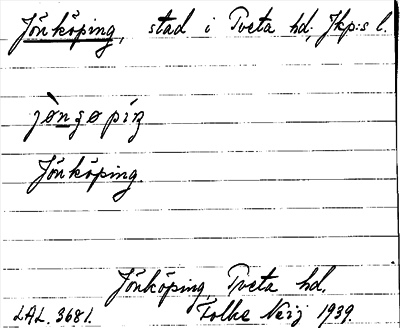 Jönköping, stad i Tveta hd, Jkp:s l.
Jönköping.
Jönköping, Tveta hd.
LAL. 3681. Folke Neij 1939.